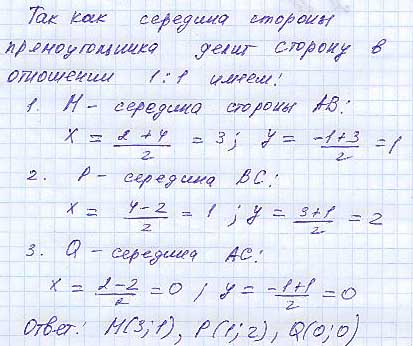 Так как середина стороны
прямоугольника делит сторону в
отношении 1:1 имеем:
1. M - середина стороны AB:
x = (2+4)/2 = 3; y = (-1+3)/2 = 1
2. P - середина BC:
x = (4-2)/2 = 1; y = (3+1)/2 = 2
3. Q - середина AC:
x = (2-2)/2 = 0; y = (-1+1)/2 = 0
Ответ: M(3;1), P(1;2), Q(0;0)